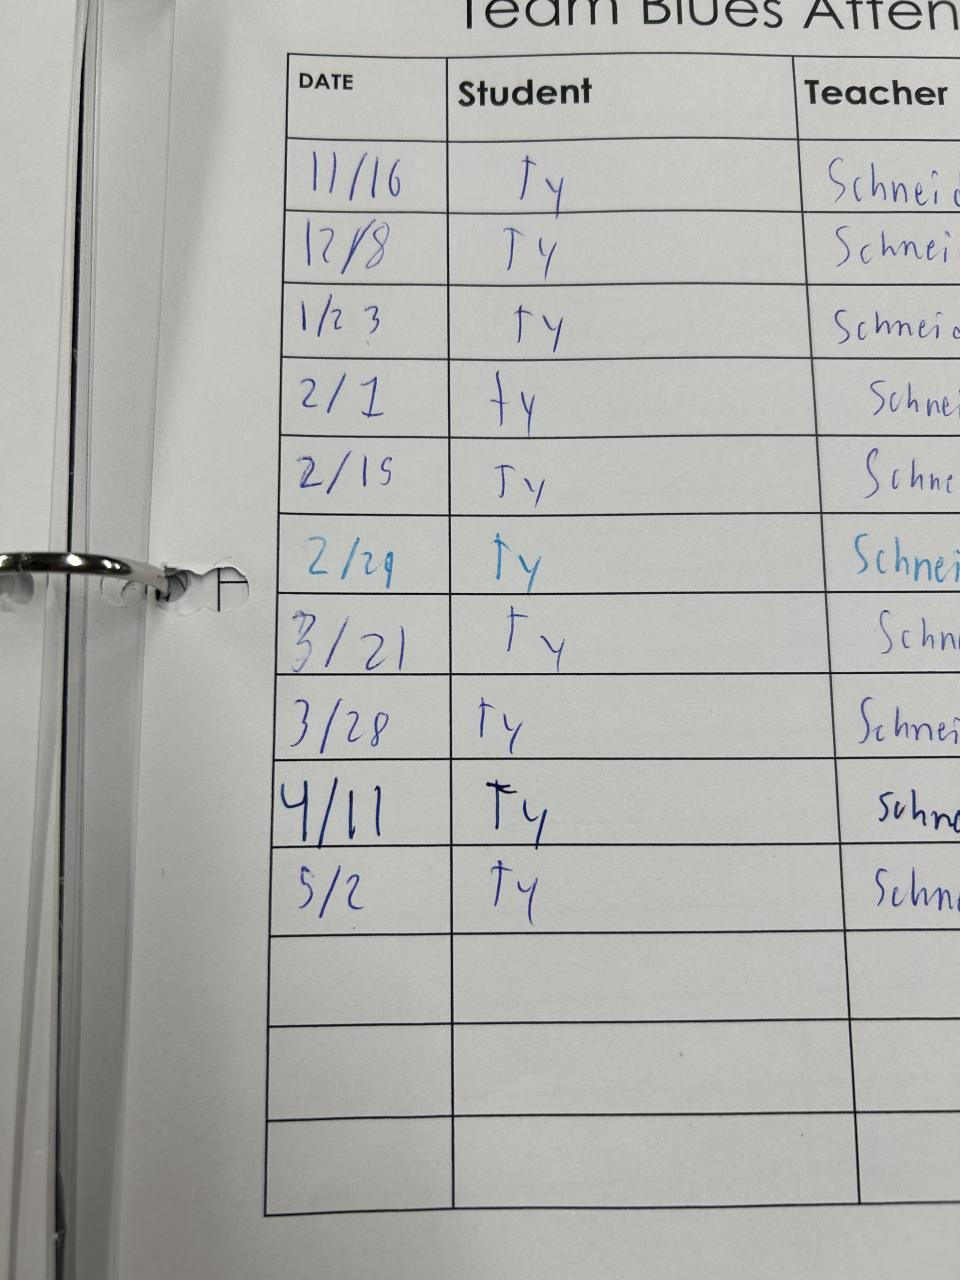 Team Blues Atten
DATE Student Teacher
11/16 Ty Schneid
12/8 Ty Schnei
1/23 Ty Schneid
2/1 ty Schnei
2/15 Ty Schne
2/29 Ty Schnei
3/21 Ty Schn
3/28 Ty Schnei
4/11 Ty Schne
5/2 Ty Schne